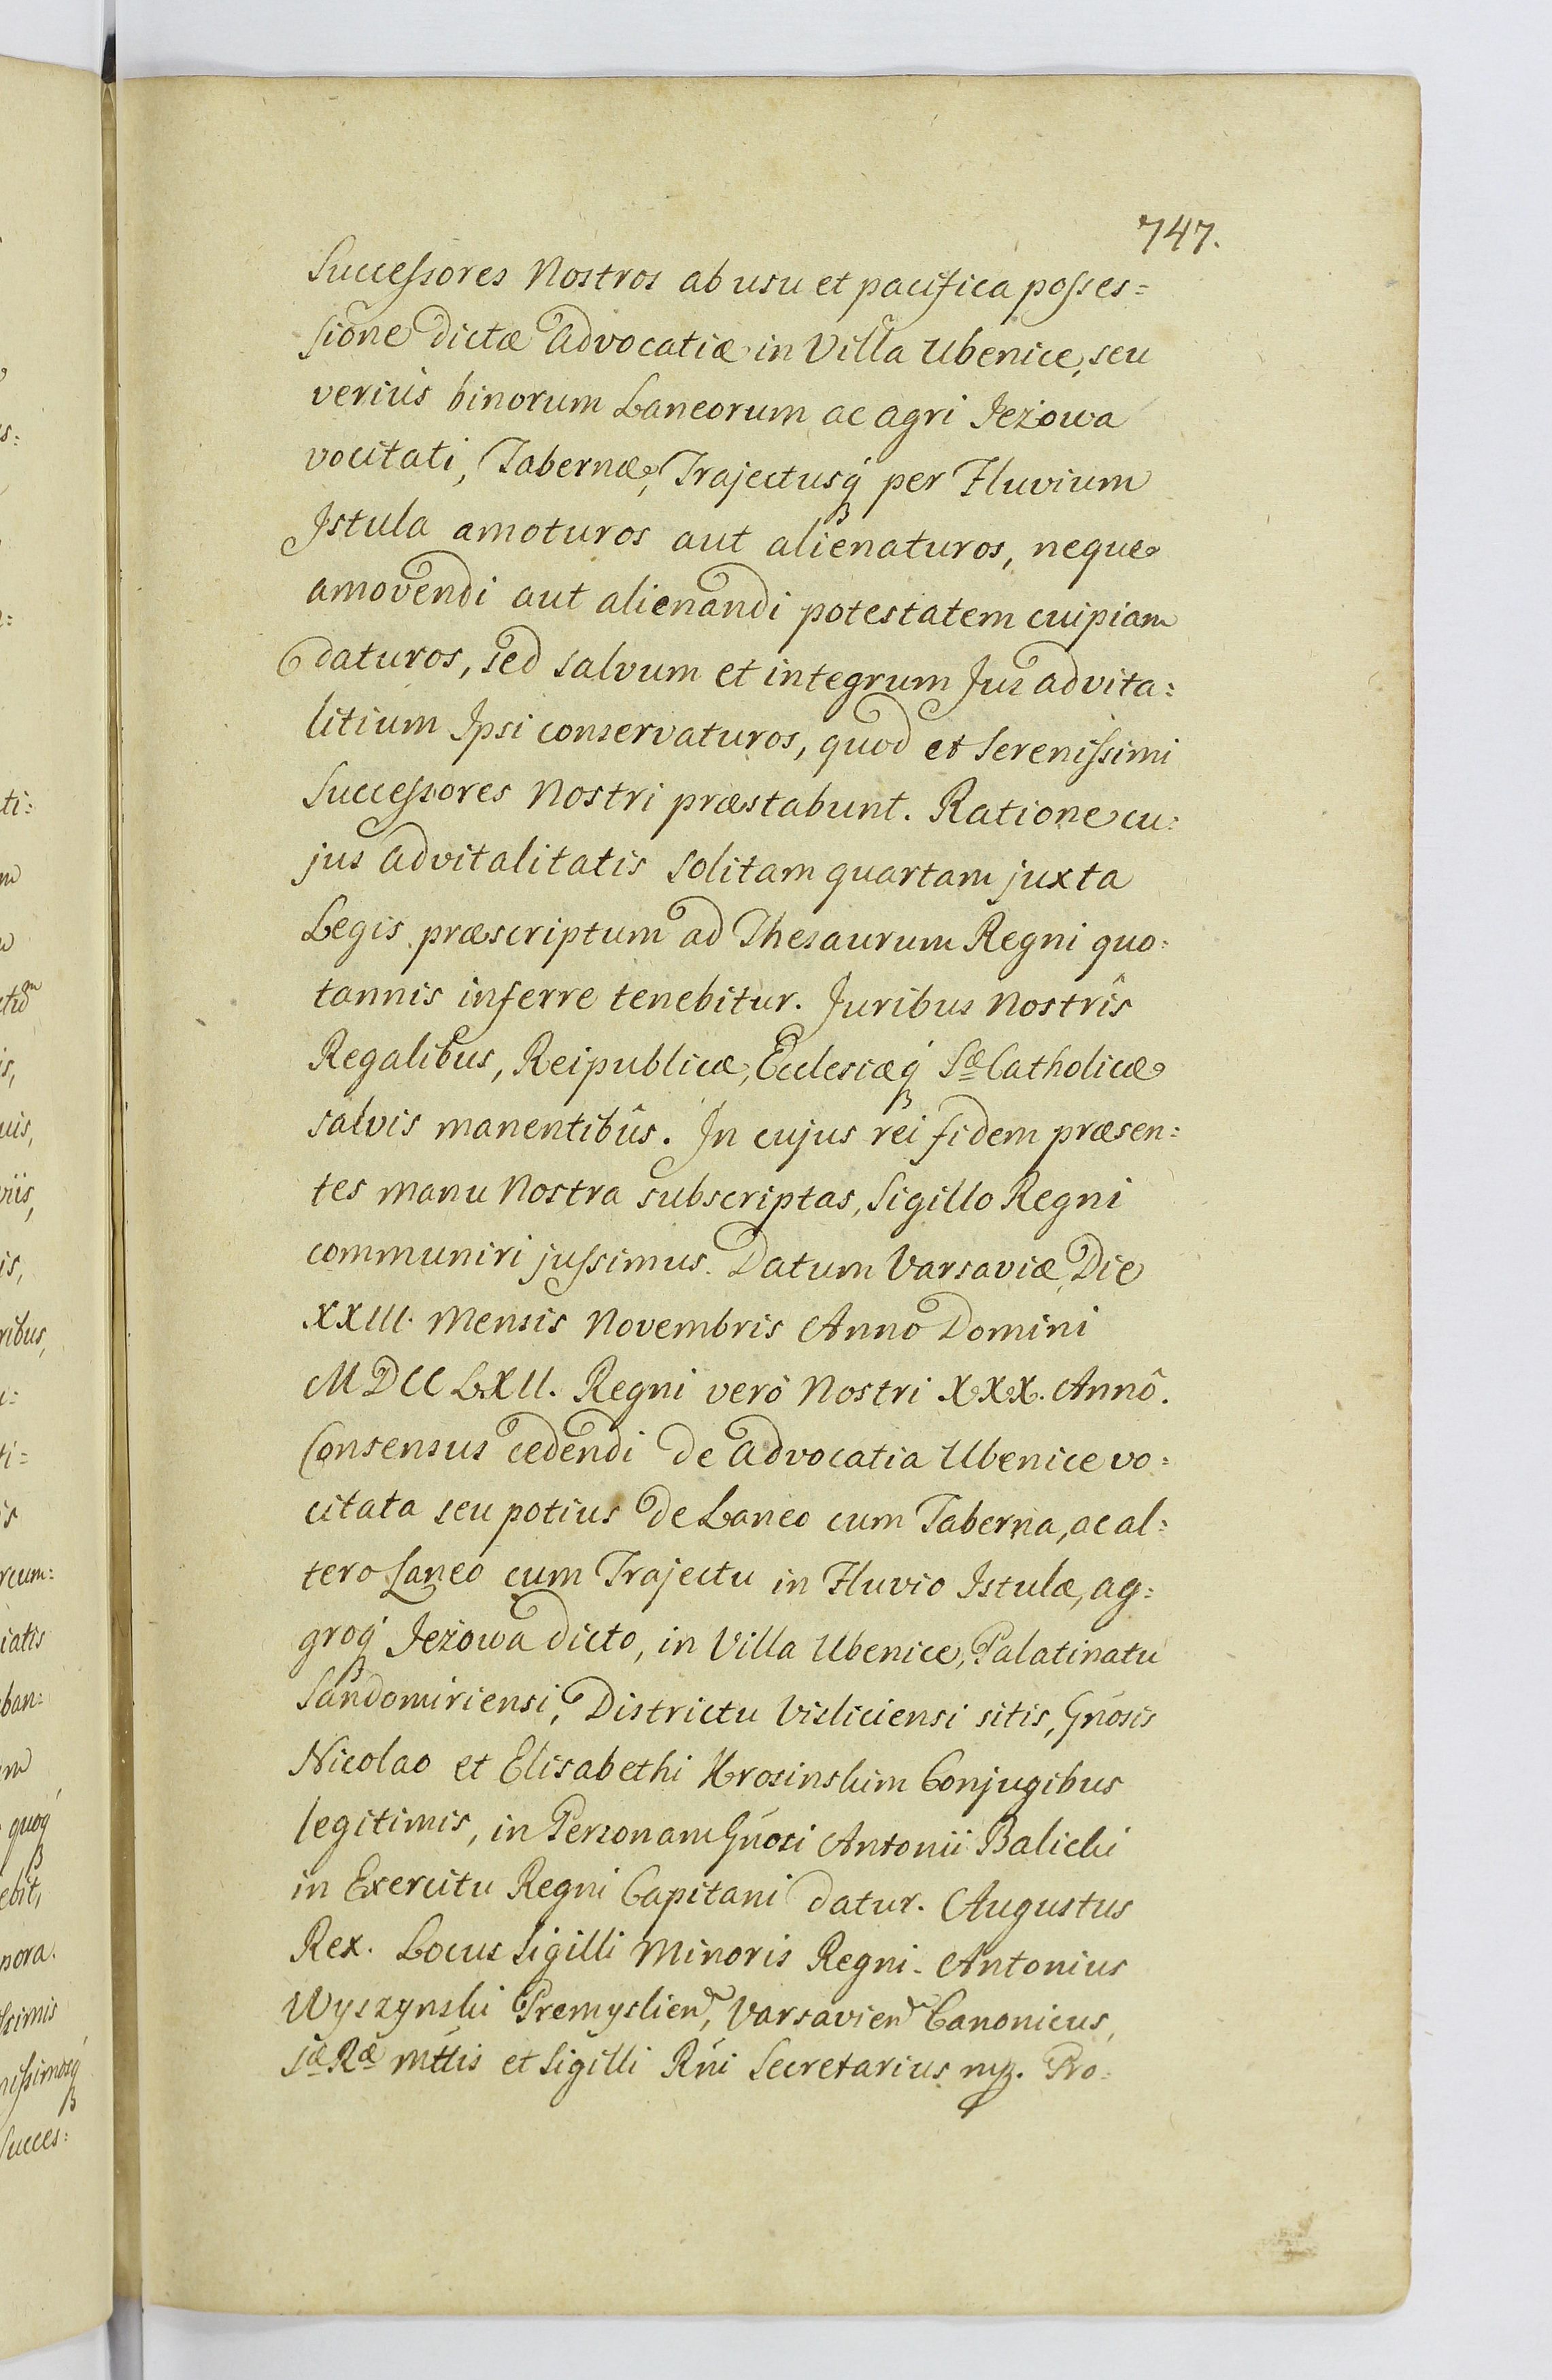 747.
Successores Nostros ab usu et pacifica posses=
sione dictæ advocatiæ in Villa Ubenice, seu
verius binorum Laneorum ac agri Jeżowa
vocitati, Tabernæ, Trajectusq́ per Fluvium
Istula amoturos aut alienaturos, neque
amovendi aut alienandi potestatem cuipiam
daturos, sed salvum et integrum Jus advita:
litium Ipsi conservaturos, quod et Serenissimi
Successores Nostri præstabunt. Ratione cu:
jus advitalitatis solitam quartam juxta
Legis præscriptum ad Thesaurum Regni quo:
tannis inferre tenebitur. Juribus Nostrîs
Regalibus, Reipublicæ, Ecclesiæq́ Sæ Catholicæ
salvis manentibûs. In cujus rei fidem præsen:
tes manu Nostra subscriptas, Sigillo Regni
communiri jussimus. Datum Varsaviæ, Die
XXIII. Mensis Novembris Anno Domini
MDCCLXII. Regni verò Nostri XXX. Annô.
Consensus cedendi de advocatia Ubenice vo:
citata seu potius de Laneo cum Taberna, ac al:
tero Laneo cum Trajectu in Fluvio Istulæ, ag:
groq́ Jeżowa dicto, in Villa Ubenice, Palatinatu
Sandomiriensi, Districtu Visliciensi sitis, Gnosis
Nicolao et Elisabethi Krosinskim Conjugibus
legitimis, in Personam Gnosi Antonii Balicki
in Exercitu Regni Capitani datur. Augustus
Rex. Locus Sigilli Minoris Regni. Antonius
Wyszynski Premyslien, Varsavien Canonicus,
Sæ Ræ Mttis et Sigilli Rni Secretarius mp. Pro: